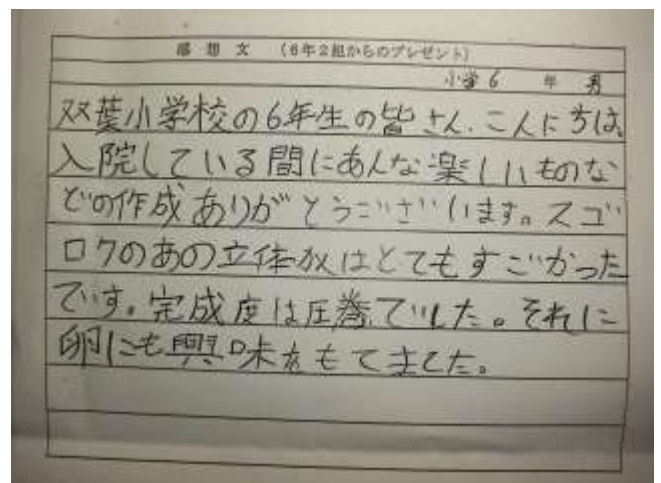 感想文 (6年2組からのプレゼント)
小学6 年 男
双葉小学校の6年生の皆さん、こんにちは、
入院している間にあんな楽しいものな
どの作成ありがとうございます。スゴ
ロクのあの立体がはとてもすごかった
です。完成度は圧巻でした。それに
卵にも興味をもてました。